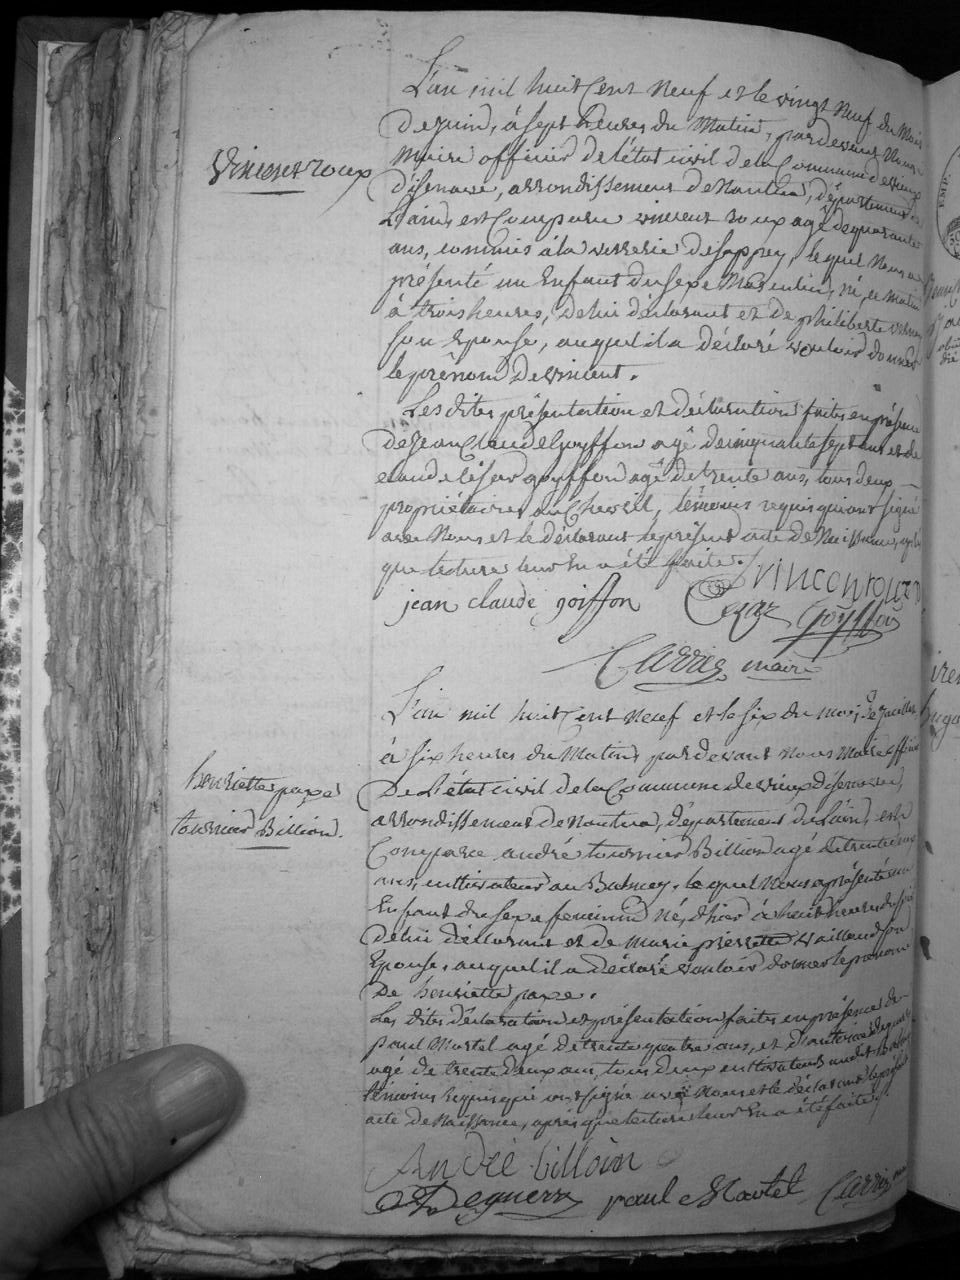 Vincent roux
L'an mil huit Cent Neuf et le vingt Neuf du Mois
De Juin, à sept heures du Matin, pardevant Nous
Maire officier de l'état civil de la Commune de vieux
D'isenave, arrondissement de Nantua, département de
L'ain, est Comparu vincent roux agé de quarante
ans, commis à la verrerie de sappey, lequel Nous a
présenté un Enfant du sexe Masculin, né, ce matin
à trois heures, de lui déclarant et de philiberte
son Epouse, auquel il a déclaré vouloir donner
le prénom De vincent.
Les dites présentation et déclaration faites en présence
De Jean Claude Goyffon agé de cinquante sept ans et de
claude César goyffon agé de trente ans, tous deux
propriétaires au Chevril, témoins requis qui ont signé
avec Nous et le déclarant le présent acte de Naissance, après
que lecture leur En a été faite.
vincent roux
jean claude goiffon Cezar Goyffon
Carrier maire
henriette pape
tournier Billion.
L'an mil huit Cent Neuf et le six du mois de Juillet
à six heures du Matin, pardevant nous Maire officier
De l'état civil de la Commune de vieux d'isenave,
arrondissement de Nantua, département de L'ain, est
Comparu andré tournier Billion agé de trente
ans, cultivateur au Balmey, lequel Nous a présenté un
Enfant du sexe feminin né, d'hier à huit heures du soir
De lui déclarant et de Marie pierrette vaillend son
Epouse, auquel il a déclaré vouloir donner le prénom
De henriette pape.
Les dites déclaration et présentation faites en présence de
paul Martel agé de trente quatre ans, et d'
agé de trente deux ans, tous deux cultivateurs audit Balmey
témoins requis qui ont signé avec Nous et le déclarant le présent
acte de Naissance, après que lecture leur En a été faite.
André billoin
Deguerre paul Martel Carrier